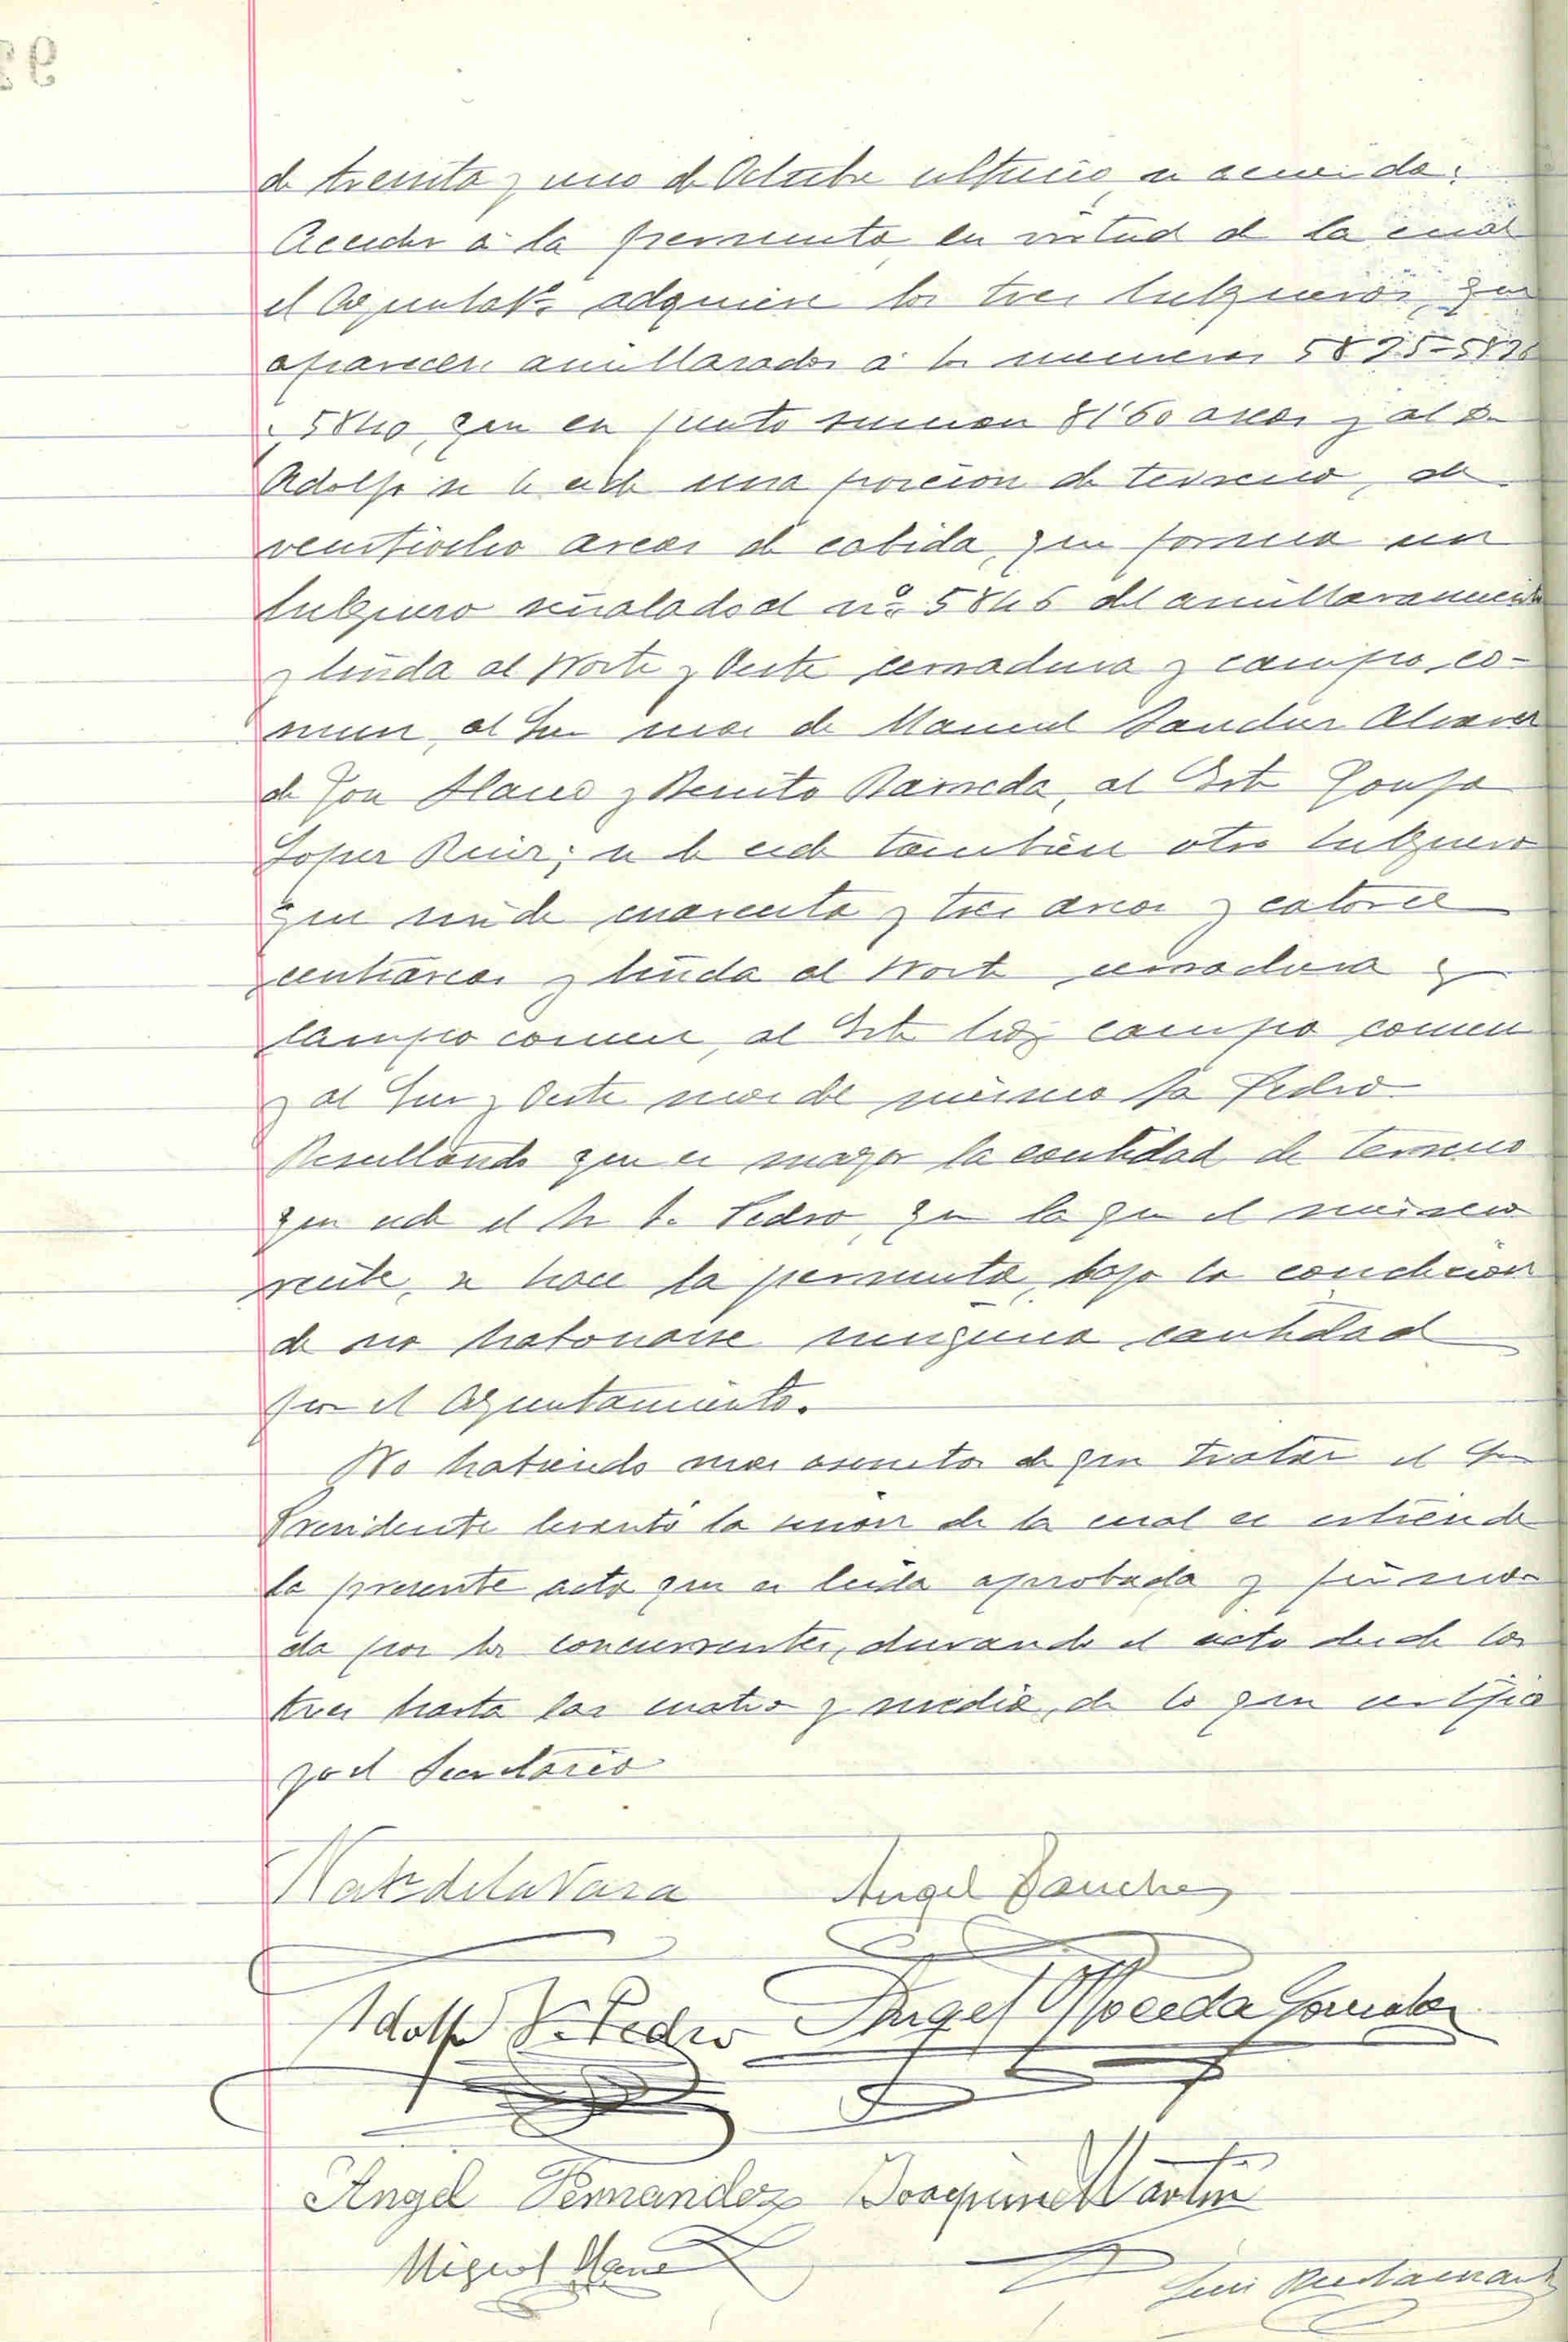 de treinta y uno de Octubre ultimo se acuerda:
Acceder a la permuta, en virtud de la cual
el Ayuntatº adquiere los tres que
aparecen amillarados a los numeros 5835-5836
y 5840, que en junto suman 81'60 areas y al Sr
Adolfo se le cede una porcion de terreno, de
veintiocho areas de cabida, que forma un
señalado al nº 5845 del amillaramiento
y linda al Norte y Oeste cerradura y campo co-
mun, al Sur mas de Manuel Sanchez Alvarez
de Jose Llano y Benito Barreda, al Este
Lopez Ruiz; se le cede tambien otro
que mide cuarenta y tres areas y catorce
centiareas y linda al Norte cerradura y
campo comun, al Este campo comun
y al Sur y Oeste mas del mismo Sn Pedro
Resultando que es mayor la cantidad de terreno
que cede el Sr S. Pedro, que la que el mismo
recibe, se hace la permuta, bajo la condicion
de no habonarse ninguna cantidad
por el Ayuntamiento.
No habiendo mas asuntos de que tratar el Sr
Presidente levantó la sesion de la cual se estiende
la presente acta que es leida aprobada y firma-
da por los concurrentes, durando el acto desde las
tres hasta las cuatro y media, de lo que certifico
yo el Secretario
de la Vara Angel Sanchez
Adolfo S. Pedro Angel Noceda Gonzalez
Angel Fernandez Joaquin Martin
Miguel Llano
Luis Bustamante